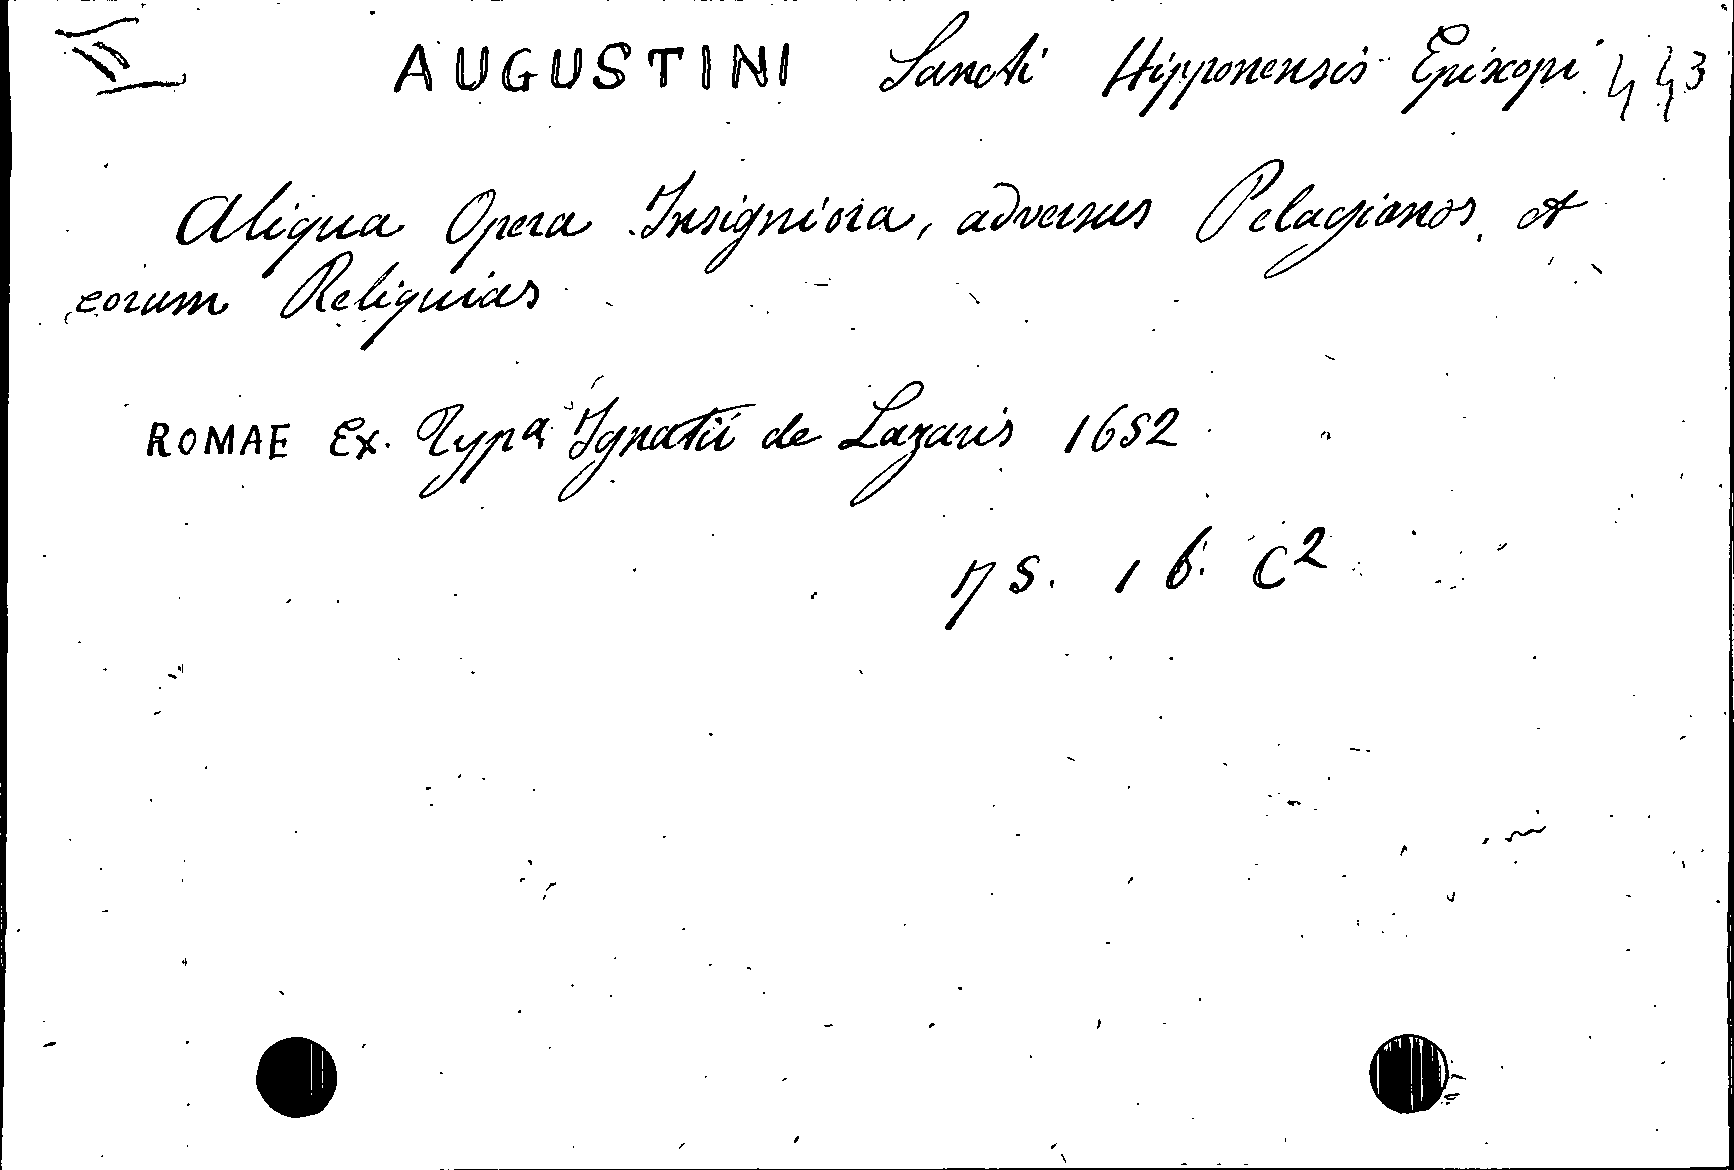 AUGUSTINI Sancti Hipponensis Episcopi 443
Aliqua Opera Insigniora, adversus Pelagianos, et
eorum Reliquias
ROMAE Ex. Typa Ignatii de Lazaris 1652
75. 16. C2